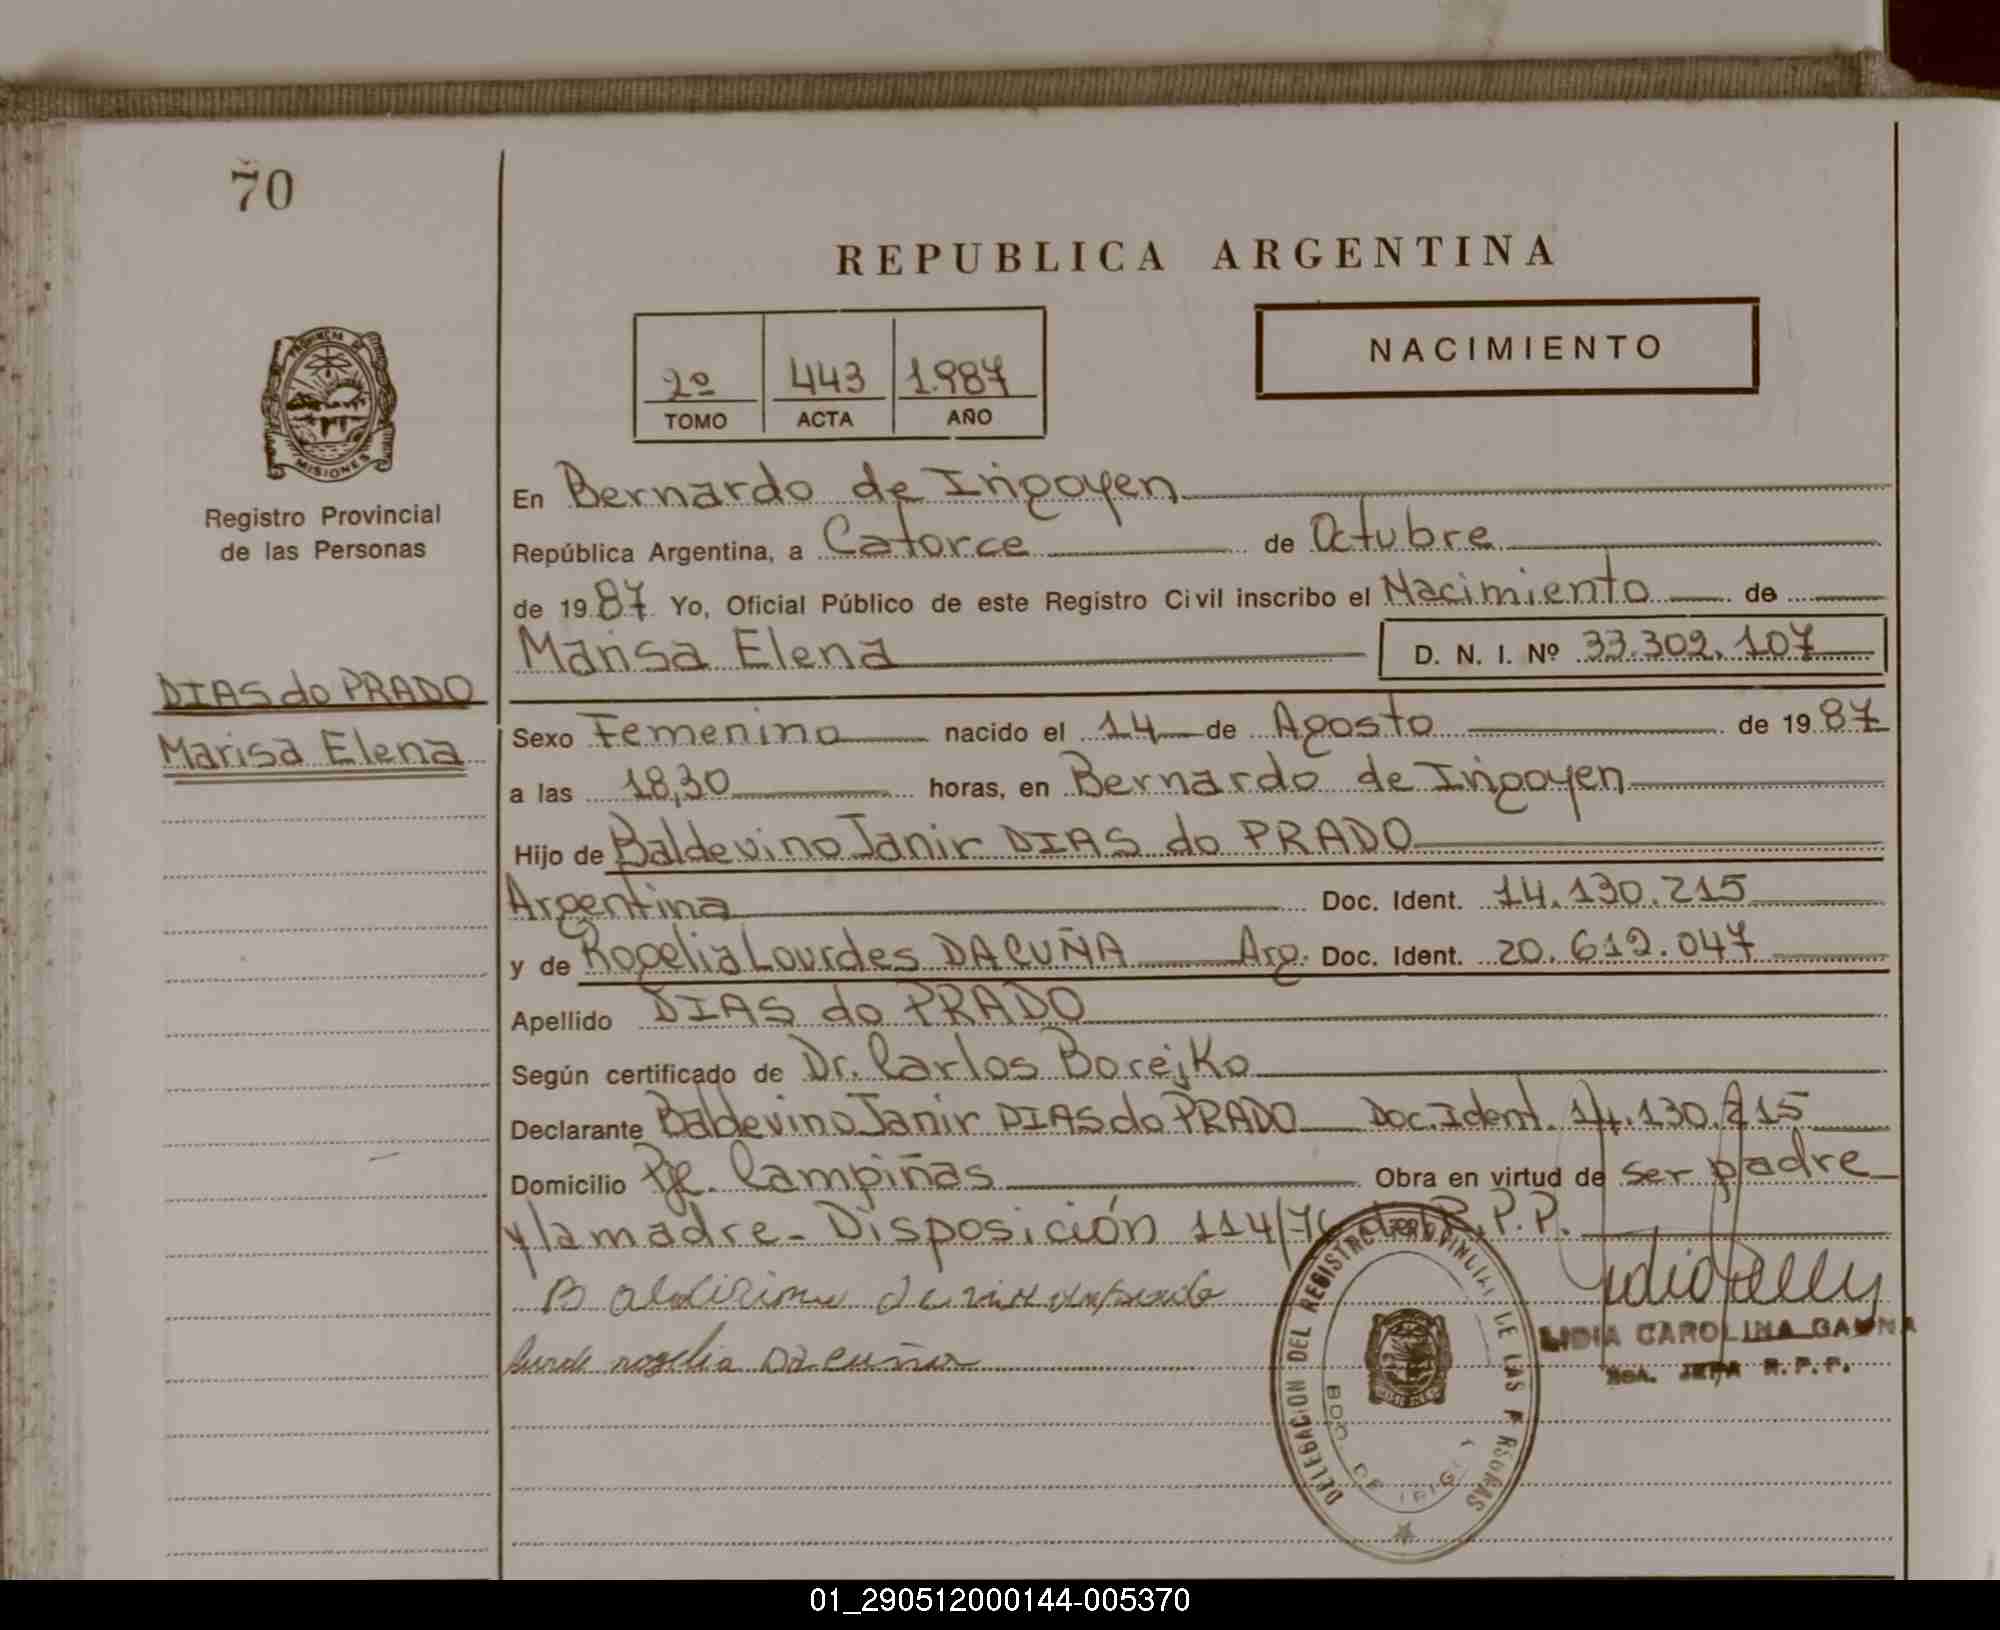 70
REPUBLICA ARGENTINA
2º 443 1.987
TOMO ACTA AÑO
NACIMIENTO
PROVINCIA DE
MISIONES
Registro Provincial
de las Personas
DIAS do PRADO
Marisa Elena
En Bernardo de Irigoyen
República Argentina, a Catorce de Octubre
de 1987 Yo, Oficial Público de este Registro Civil inscribo el Nacimiento de
Marisa Elena D. N. I. Nº 33.302.107
Sexo Femenino nacido el 14 de Agosto de 1987
a las 18,30 horas, en Bernardo de Irigoyen
Hijo de Baldevino Janir DIAS do PRADO
Argentina Doc. Ident. 14.130.215
y de Rogelia Lourdes DACUÑA Arg. Doc. Ident. 20.612.047
Apellido DIAS do PRADO
Según certificado de Dr. Carlos Borejko
Declarante Baldevino Janir DIAS do PRADO Doc. Ident. 14.130.215
Domicilio Pje. Campiñas Obra en virtud de ser padre
y la madre - Disposición 114/76 del R.P.P.
rogelia Dacuña
DELEGACION DEL REGISTRO PROVINCIAL DE LAS PERSONAS
BDO. DE IRIGOYEN
LIDIA CAROLINA GAUNA
JEFA R.P.P.
01_290512000144-005370